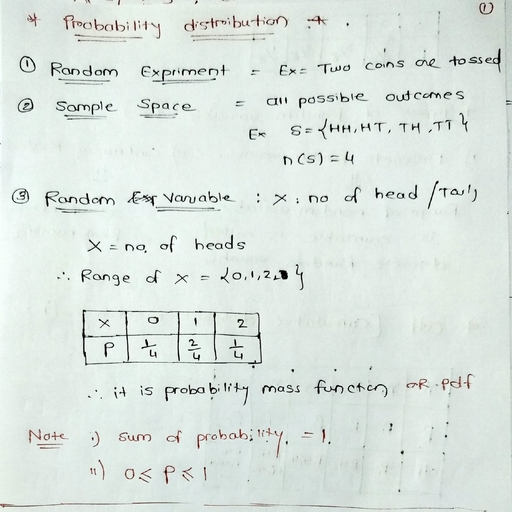 ①
* Probability distribution *.
① Random Expriment = Ex = Two coins are tossed
② Sample Space = all possible outcomes
Ex S = {HH, HT, TH, TT}
n(s) = 4
③ Random Variable : X : no of head / Tails
X = no. of heads
∴ Range of X = {0,1,2}
X 0 1 2
P 1/4 2/4 1/4
∴ it is probability mass function OR pdf
Note i) sum of probability. = 1.
ii) 0 ≤ P ≤ 1